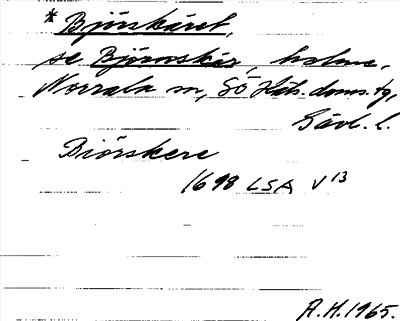 * Björskäret,
se Björnskär, holme,
Norrala sn, Sö Häls. doms. tg,
Gävl. l.
Biörskere
1698 LSA V 13
A.H. 1965.